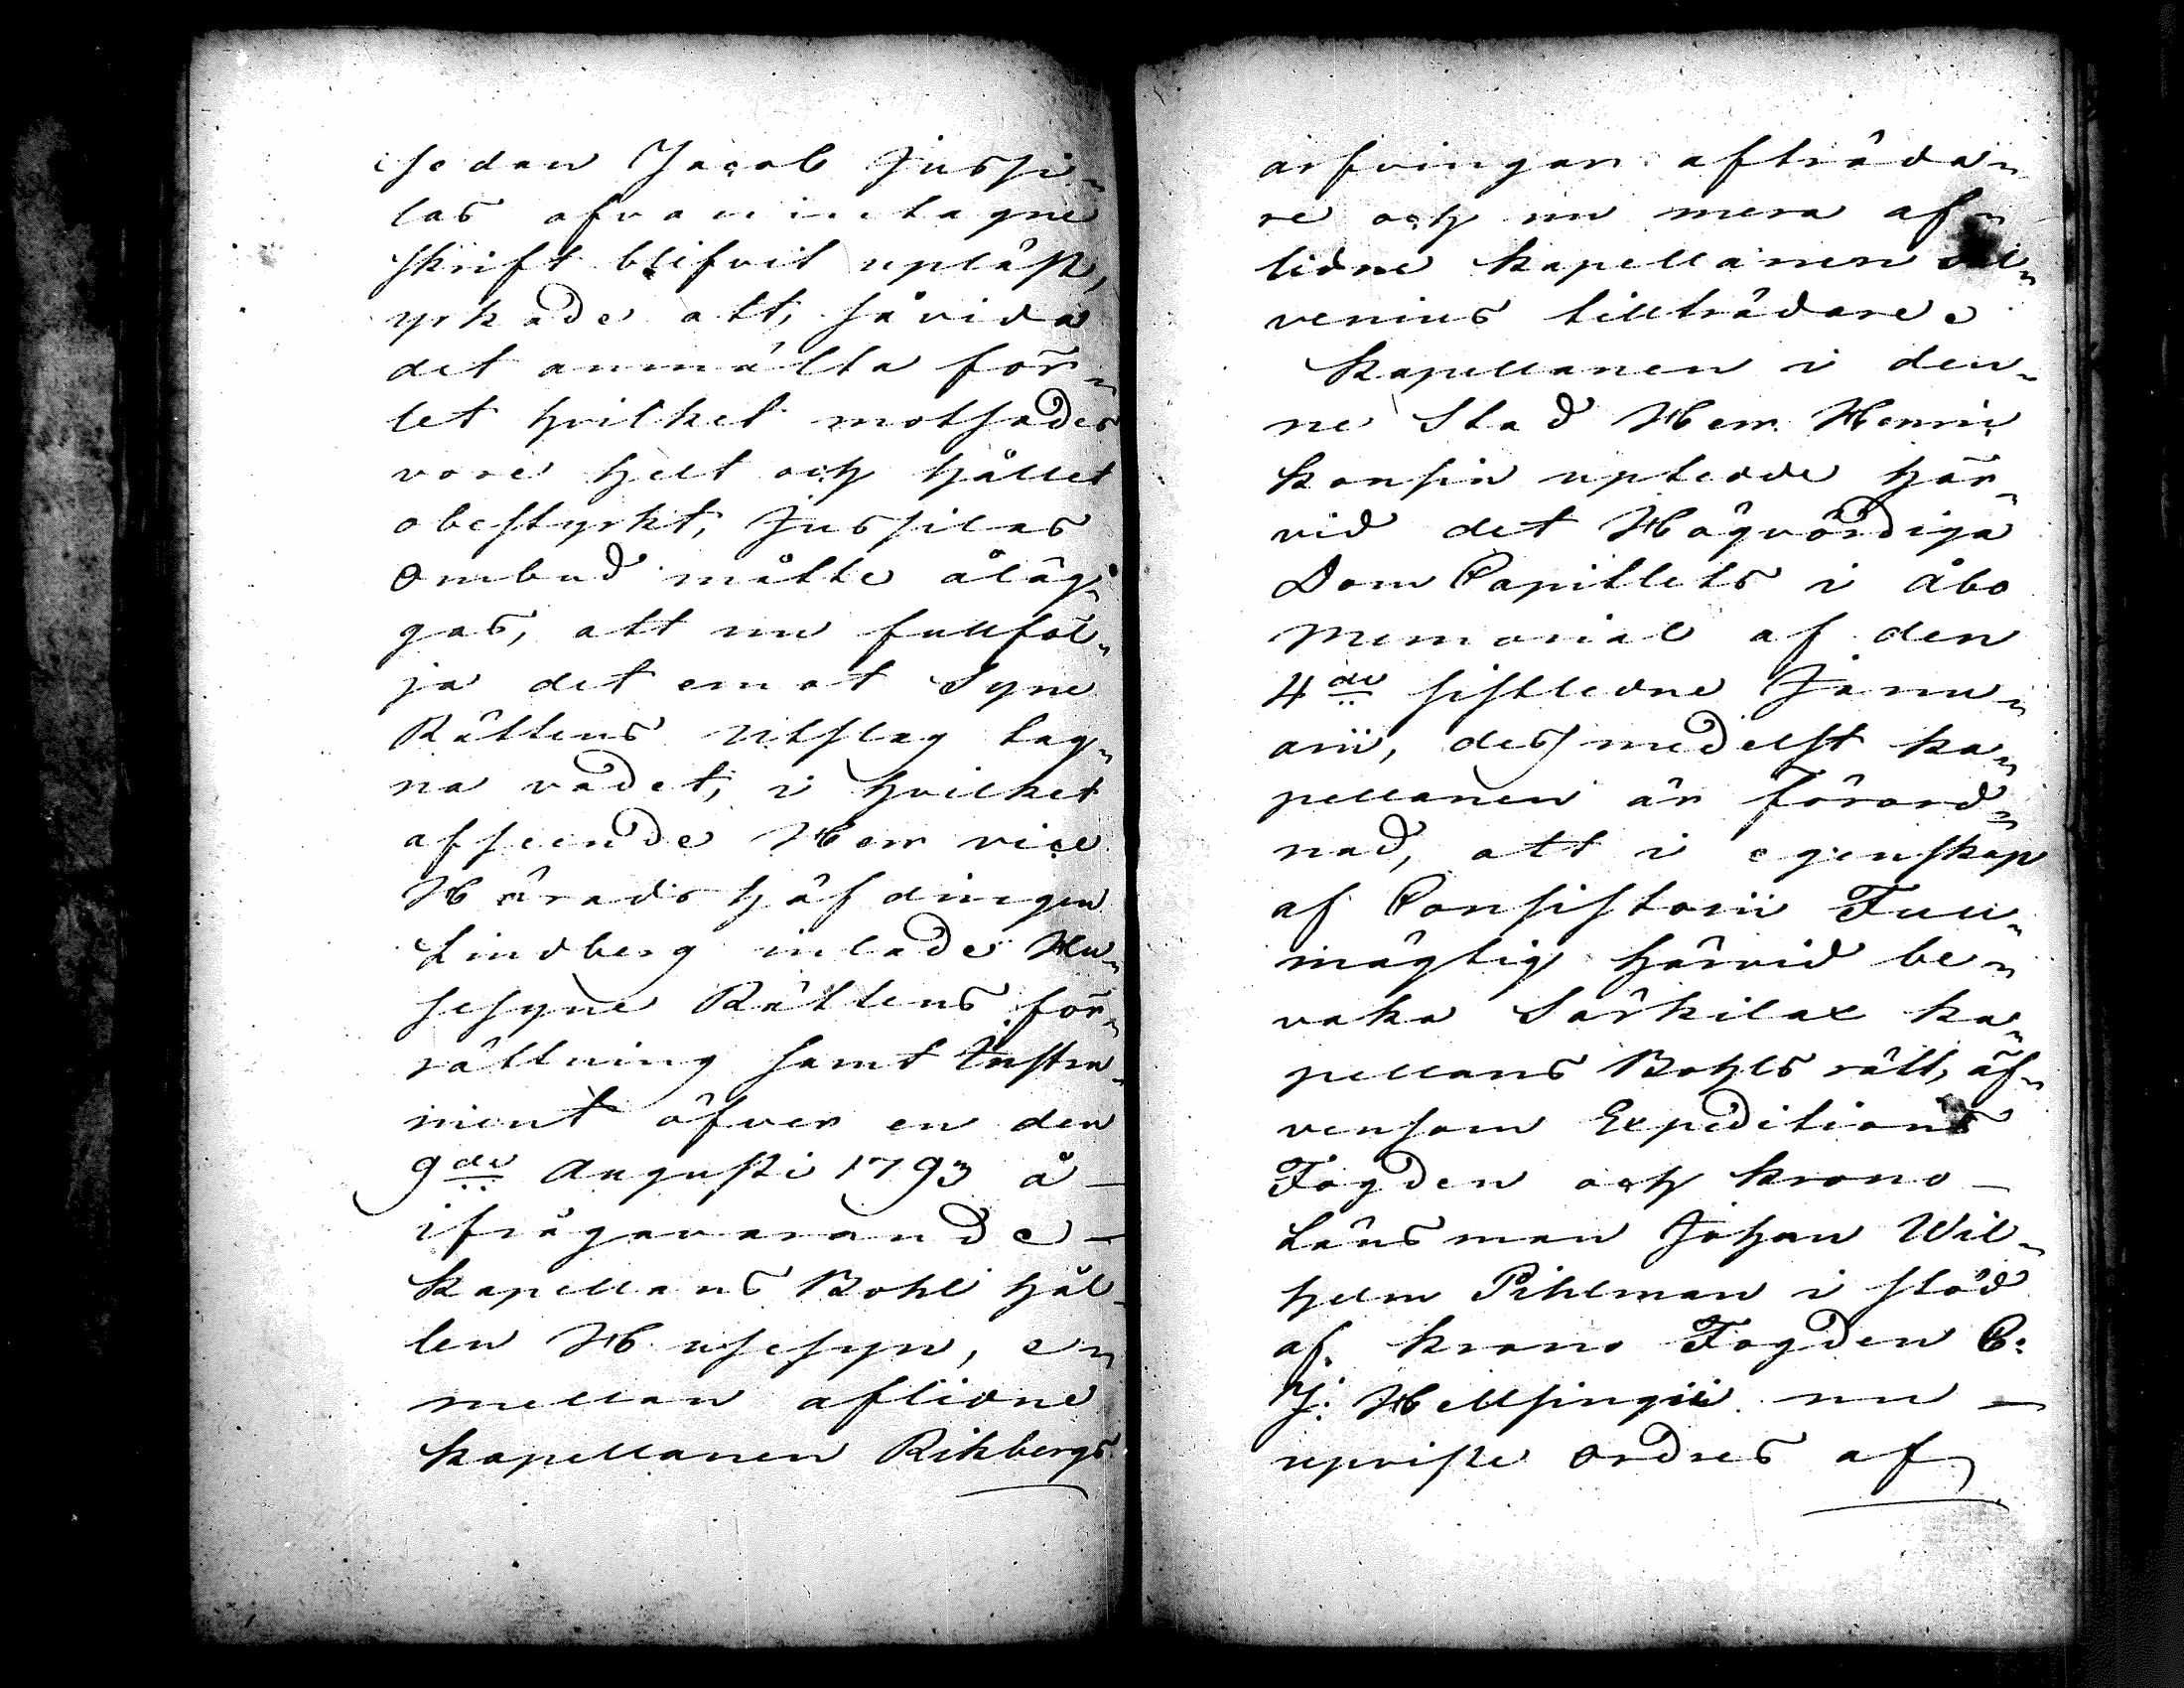 sedan Jacob Jussi„
las ofvanintagne
skrift blifvit upläst,
yrkade att, såvida
det anmälta för„
let hvilket motsades
vore helt och hållet
obestyrkt, Jussilas
Ombud måtte åläg„
gas, att nu fullföl„
ja det emot Syne
Rättens Utslag tag„
na vadet, i hvilket
afseende Herr vice
Häradshöfdingen
Lindberg inlade Hu„
sesyne Rättens för„
rättning samt Instru„
ment öfver en den
9de Augusti 1793 å —
ifrågavarande —
Kapellans Bohl hål„
len Husesyn, e„
mellan aflidne
Kapellanen Rikbergs
arfvingar afträda„
re och nu mera af„
lidne Kapellanen
venius tillträdare.
Kapellanen i den„
ne Stad Herr Henric
Konsin uptedde här„
vid det Högvördiga
Dom Capitlets i Åbo
Memorial af den
4de sistledne Janu„
arii, desmedelst Ka„
pellanen är Förord„
nad, att i egenskap
af Consistorii Full„
mägtig härvid be„
vaka Särkilax Ka„
pellans Bohls rätt, äf„
vensom Expeditions
Fogden och Krono —
Länsman Johan Wil„
helm Pihlman i stöd
af Krono Fogden C:
J: Hellsingii nu —
upviste Ordres af